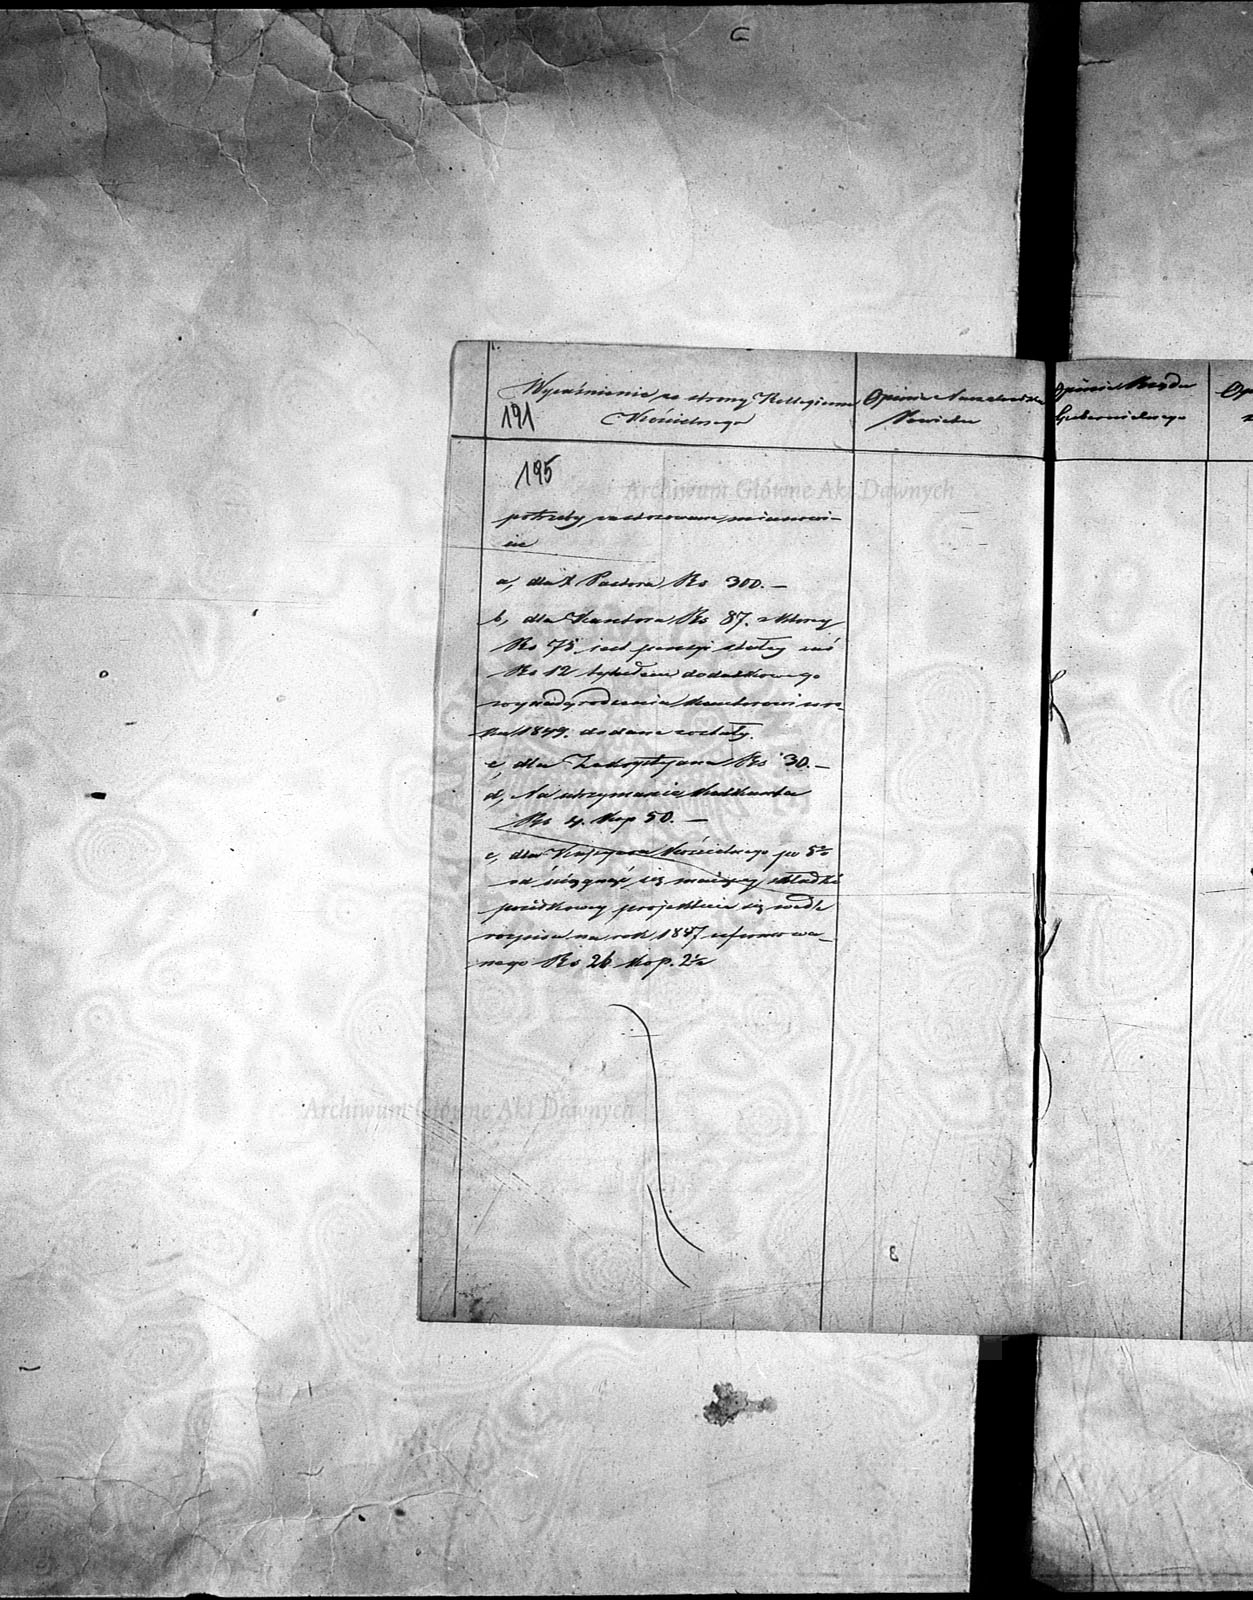 Wyjaśnienie ze strony Kollegium
Kościelnego
191
Opinia Naczelnika
Powiatu
Opinia Rządu
Gubernialnego
Op
195
Archiwum Główne Akt Dawnych
potrzeby zastosowane mianowi-
cie
a, dla X Pastora Rs 300. —
b, dla Kantora Rs 87. z których
Rs 75 jest pensyi stałej zaś
Rs 12 tytułem dodatkowego
wynadgrodzenia Kantorowi w ro-
ku 1849. dodane zostały.
c, dla Zakrystyana Rs 30. —
d, Na utrzymanie Kalkanta
Rs 4. Kop 50. —
e, dla Kassyera Kościelnego po 5%
od ściągnąć się mającej składki
projektuje się wedle
na rok 1847 uformowa-
nego Rs 26 Kop. 2½
Archiwum Główne Akt Dawnych